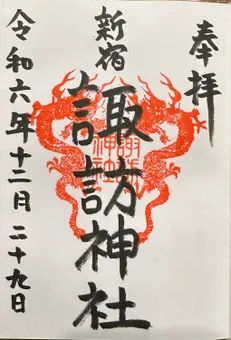 奉拝
新宿
諏訪神社
令和六年十二月二十九日